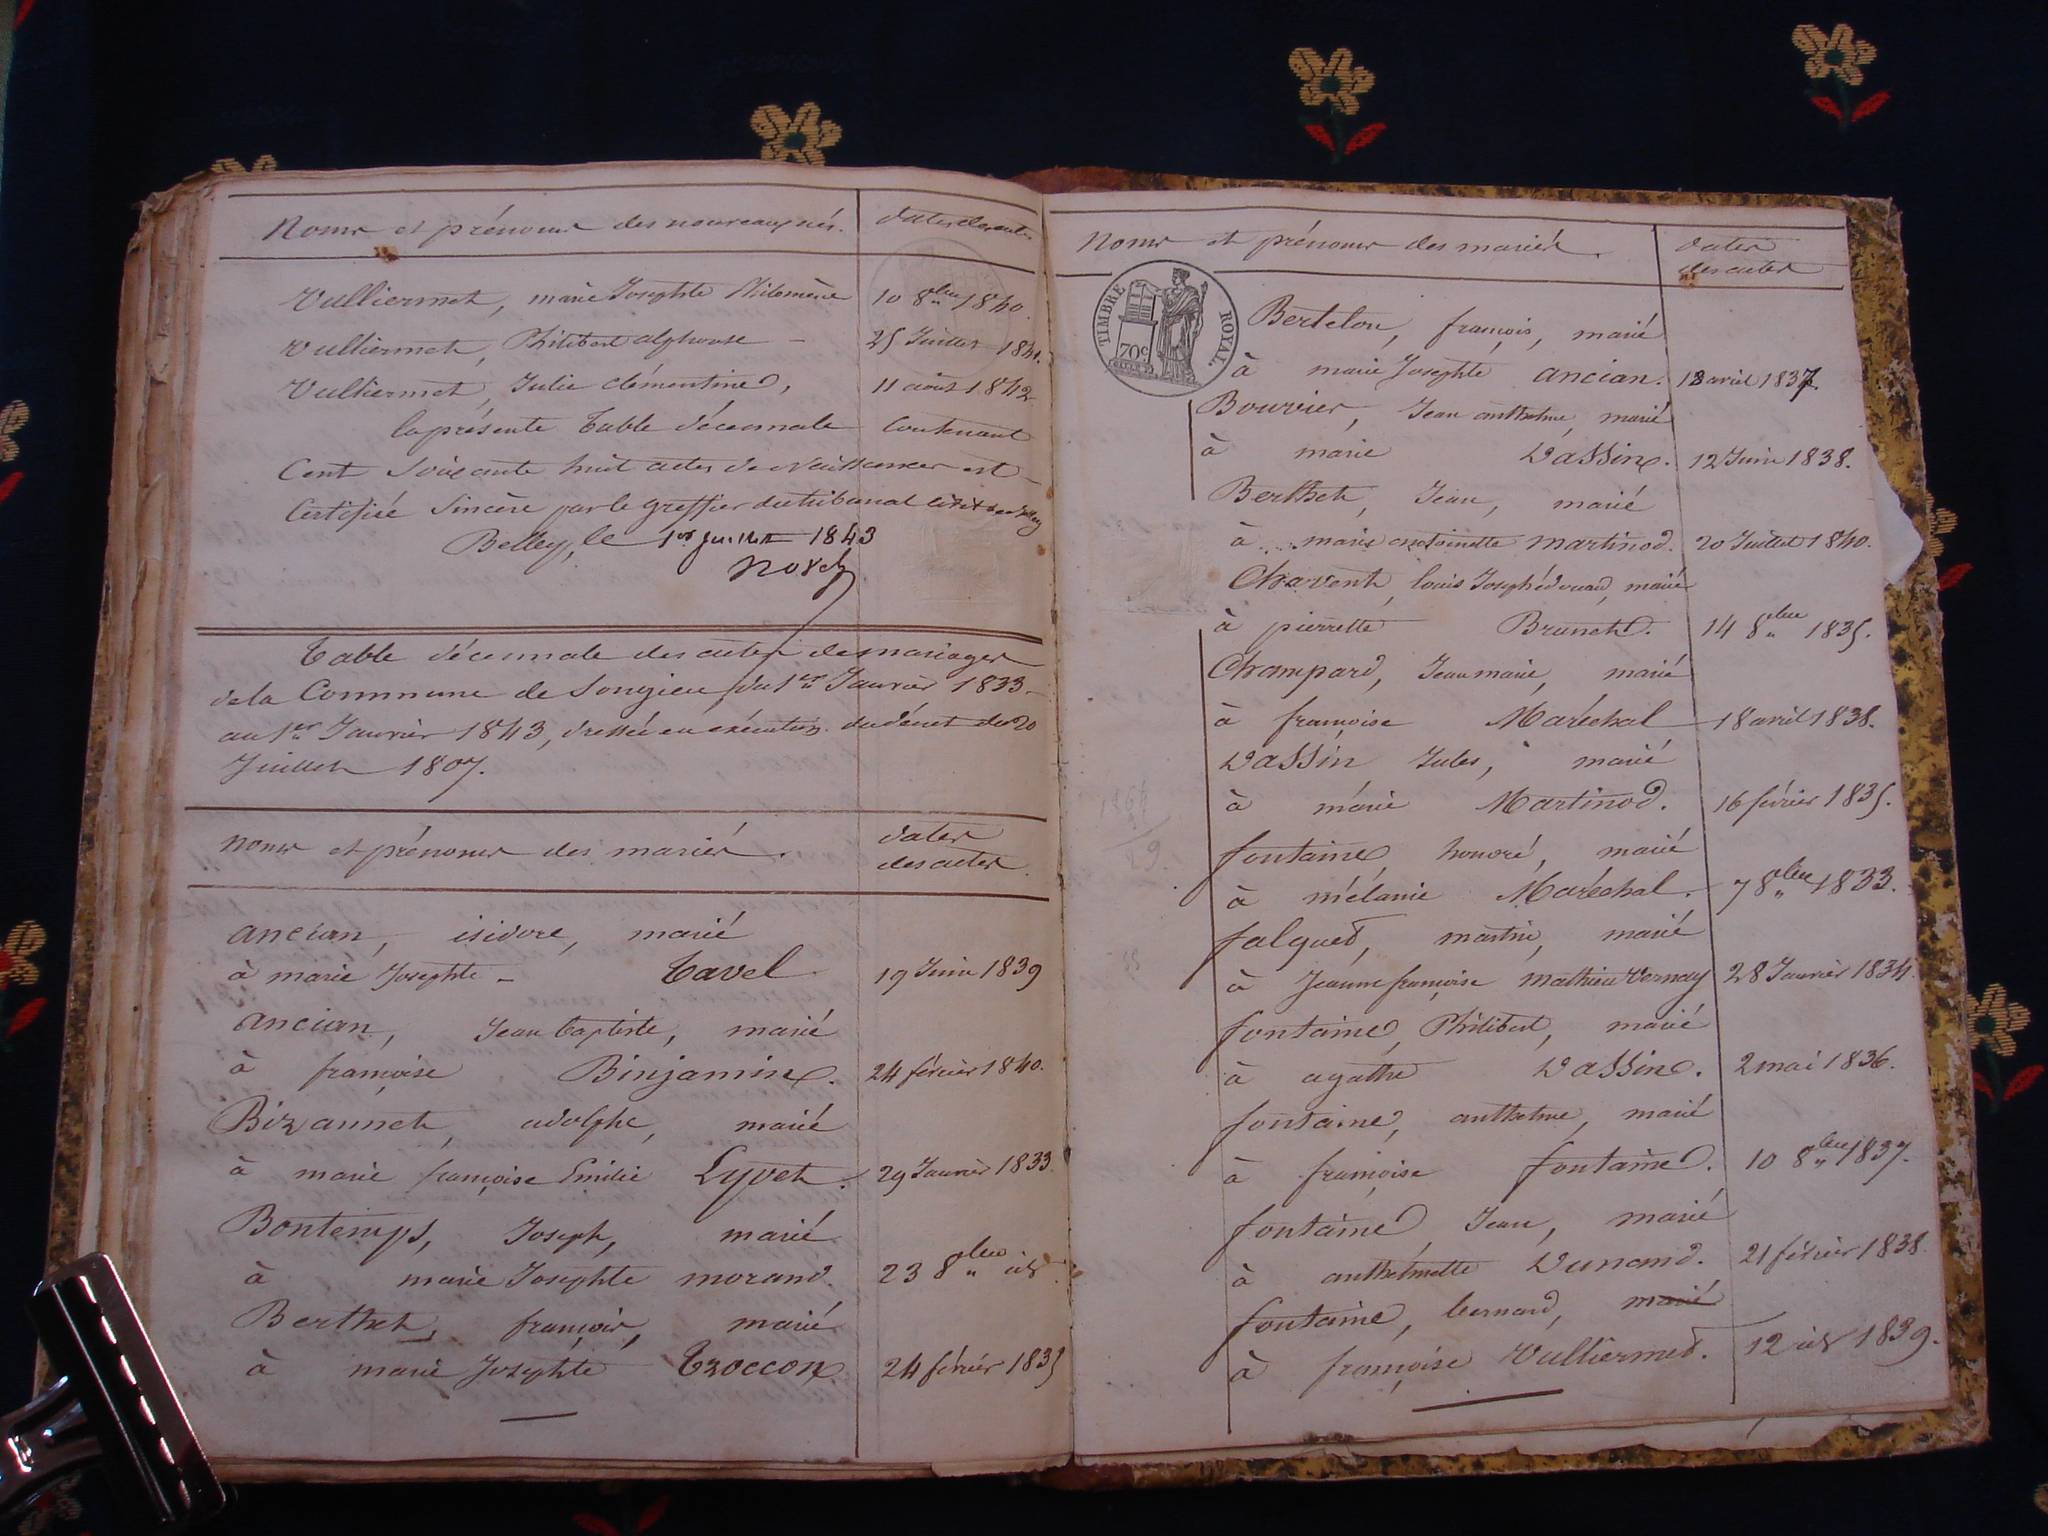 Noms et prénoms des nouveaux nés. dates des actes
Vulliermet, marie Josephte Philomène 10 8bre 1840.
Vulliermet, Philibert alphonse - 25 Juillet 1841.
Vulliermet, Julie clémentine, 11 août 1842
la présente Table décennale Contenant
Cent Soixante huit actes de Naissances est
Certifiée Sincère par le greffier du tribunal civil de Belley
Belley, le 1er juillet 1843
Table décennale des actes de mariages
de la Commune de Songieu, du 1er Janvier 1833
au 1er Janvier 1843, dressée en exécution du décret du 20
Juillet 1807.
Noms et prénoms des mariés. dates
des actes.
ancian, isidore, marié
à marie Josephte - Tavel 19 Juin 1839
ancian, Jean baptiste, marié
à françoise Binjamin. 24 février 1840.
Bizannet, adolphe, marié
à marie françoise Emilie Lyvet. 29 Janvier 1833.
Bontemps, Joseph, marié
à marie Josephte morand. 23 8bre id.
Berthet, françois, marié
à marie Josephte Troccon 24 février 1835
Noms et prénoms des mariés. dates
des actes
TIMBRE ROYAL
70c
Bertelon, françois, marié
à marie Josephte ancian. 18 avril 1837.
Bouvier, Jean anthelme, marié
à marie Dassin. 12 Juin 1838.
Berthet, Jean, marié
à marie antoinette martinod. 20 Juillet 1840.
Charvent, louis Joseph édouard, marié
à pierrette Brunet. 14 8bre 1835.
Champard, Jean marie, marié
à françoise Maréchal 18 avril 1838.
Dassin Jules, marié
à marie Martinod. 16 février 1835.
fontaine, honoré, marié
à mélanie Maréchal. 7 8bre 1833.
falquet, martin, marié
à Jeanne françoise mathieu Vernay 28 Janvier 1834.
fontaine, Philibert, marié
à agathe Dassin. 2 mai 1836.
fontaine, anthelme, marié
à françoise fontaine. 10 8bre 1837.
fontaine, Jean, marié
à anthelmette Dunand. 21 février 1838.
fontaine, bernard, marié
à françoise Vulliermet. 12 id 1839.